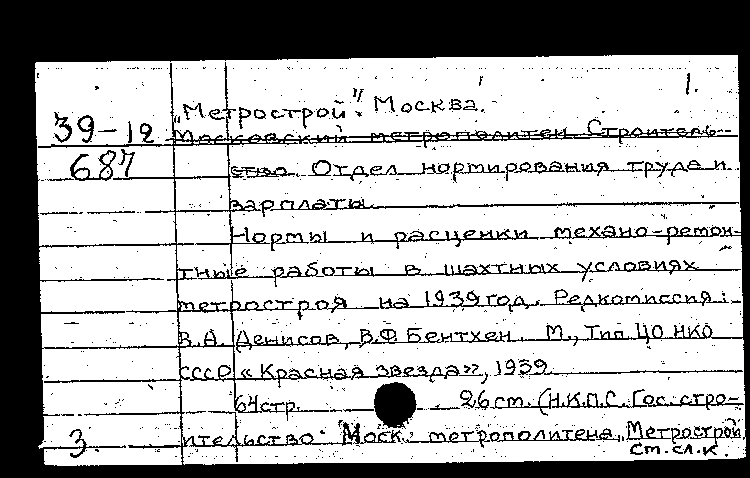 1.
„Метрострой". Москва.
39-12 Московский метрополитен. Строитель-
687 ство. Отдел нормирования труда и
зарплаты.
Нормы и расценки механо-ремон-
тные работы в шахтных условиях
метростроя на 1939 год. Редкомиссия:
В.А. Денисов, В.Ф. Бентхен. М., Тип. ЦО НКО
СССР «Красная звезда», 1939.
64стр. 26 cm. (Н.К.П.С. Гос. стро-
3. ительство Моск. метрополитена „Метрострой
См. сл. к.